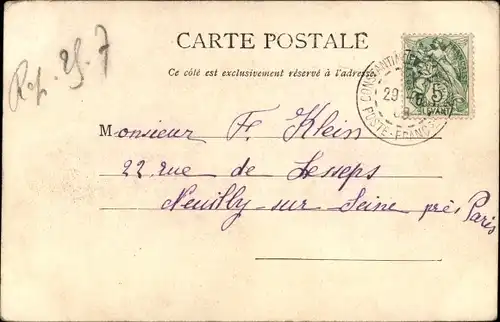 Rép. 25.7
CARTE POSTALE
Ce côté est exclusivement réservé à l'adresse
CONSTANTIN
29
POSTE-FRANC
5
Monsieur F. Klein
22 rue de Lesseps
Neuilly-sur-Seine près Paris